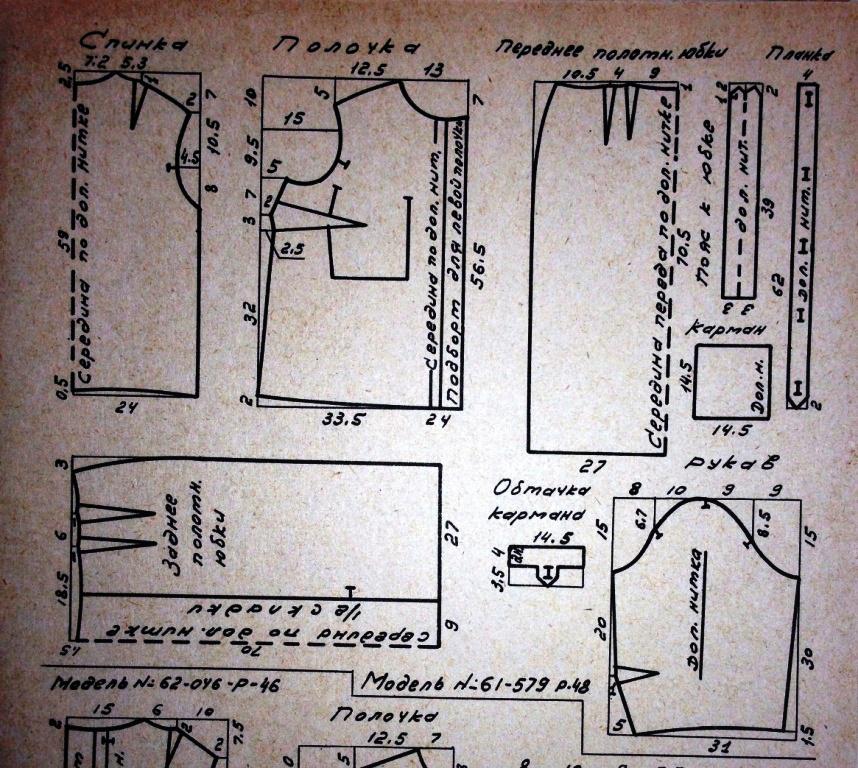 Спинка
7.2 5.3
2.5
2
7
10.5
4.5
8
59
Середина по дол. нитке
0.5
24
Полочка
12.5 13
10
5
7
15
9.5
5
7
2
3
2.5
32
2
Середина по дол. нит.
Подборт для левой полочки
56.5
33.5
24
Переднее полотн. юбки
10.5 4 9
1
Середина переда по дол. нитке
70.5
27
Пояс к юбке
1.2
2
дол. нит.
39
3 3
Планка
4
дол. нит.
62
2
Карман
14.5
Дол.н.
14.5
Заднее
полотн.
юбки
3
6
18.5
27
1/2 складки
середина по дол. нитке
9
70
Обтачка
кармана
14.5
4
3.5
Рукав
8 10 9 9
6.7
8.5
15
15
Дол. нитка
20
30
5
1.5
31
Модель №62-046-Р-46
Модель №61-579 р.48
15 6 10
2
2
2
7.5
Полочка
12.5 7
5